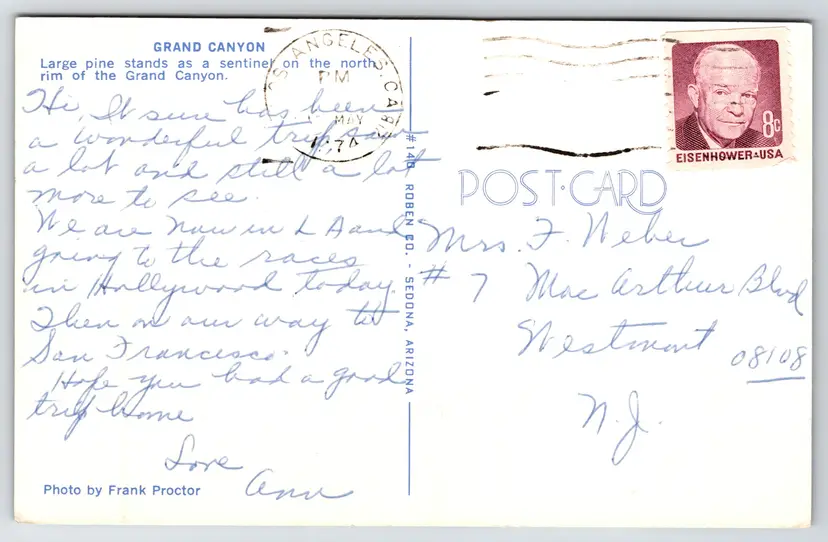 GRAND CANYON
Large pine stands as a sentinel on the north
rim of the Grand Canyon.
Hi, It sure has been
a wonderful trip, saw
a lot and still a lot
more to see.
We are now in L A and
going to the races
in Hollywood today.
Then on our way to
San Francisco.
Hope you had a good
trip home
Love
Ann
Photo by Frank Proctor
#140 ROBEN CO. - SEDONA, ARIZONA
LOS ANGELES, CALIF
PM
MAY
1974
EISENHOWER·USA
8c
POST·CARD
Mrs. F. Weber
# 7 Mac Arthur Blvd
Westmont 08108
N.J.